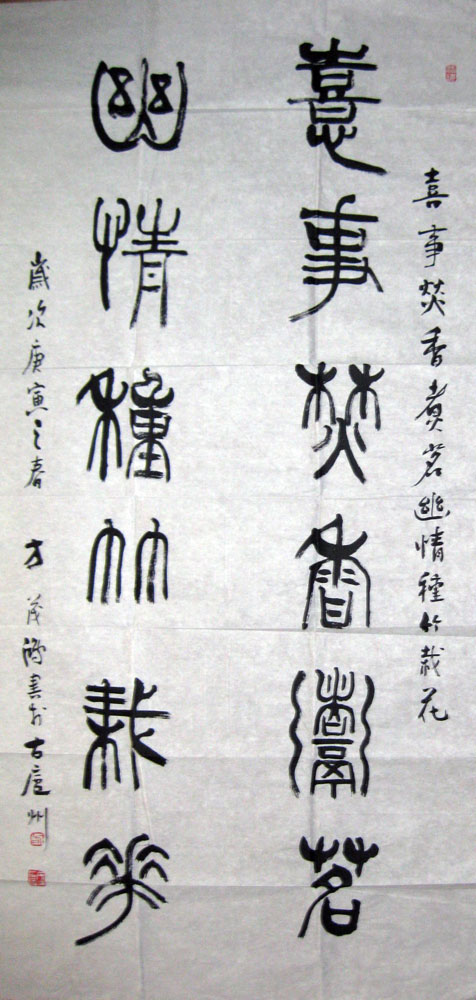 喜事焚香煮茗幽情種竹栽花
憙事焚香煮茗
幽情種竹栽花
歲次庚寅之春 方茂鴻書於古廬州